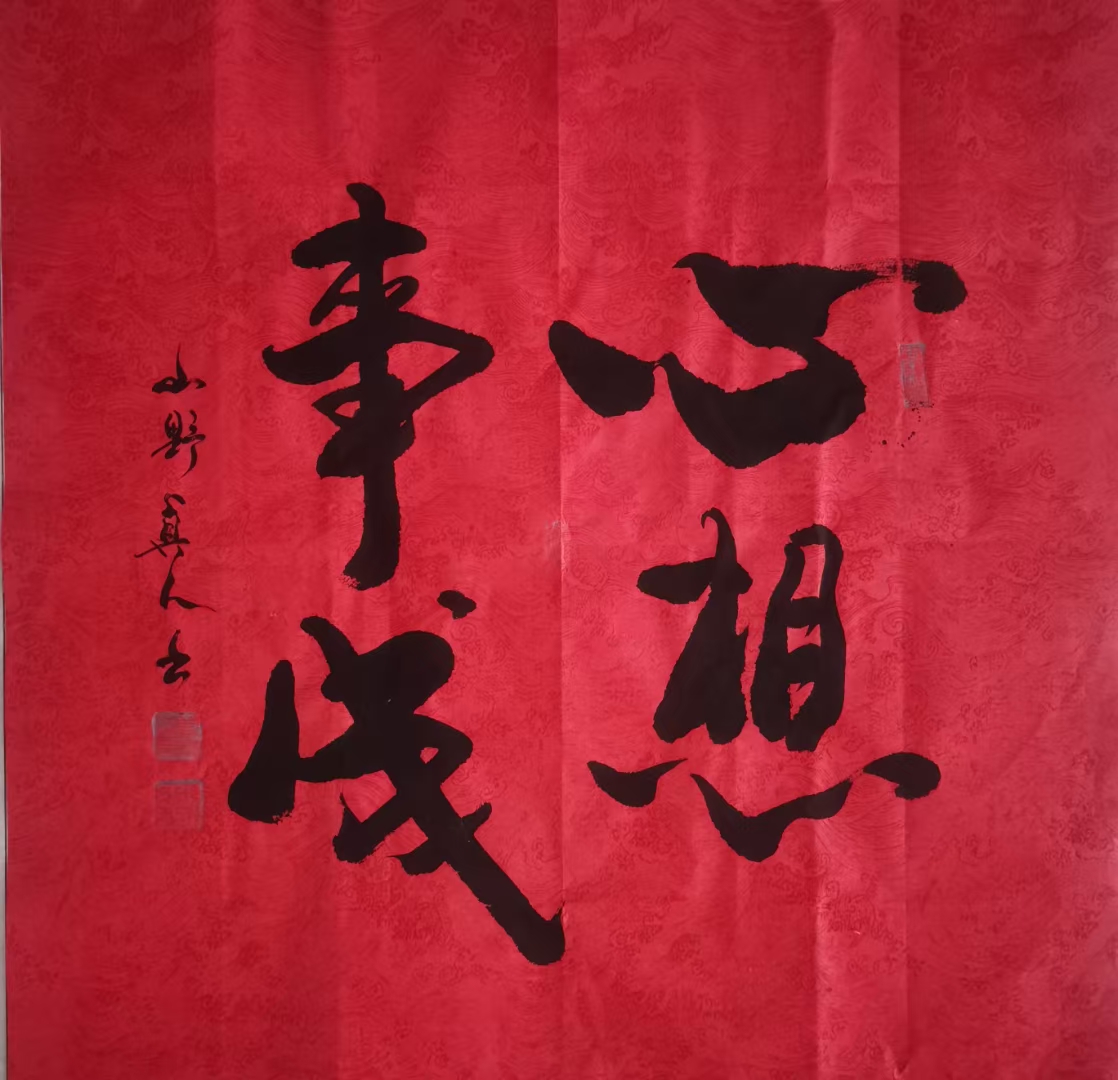 心想
事成
山野真人书